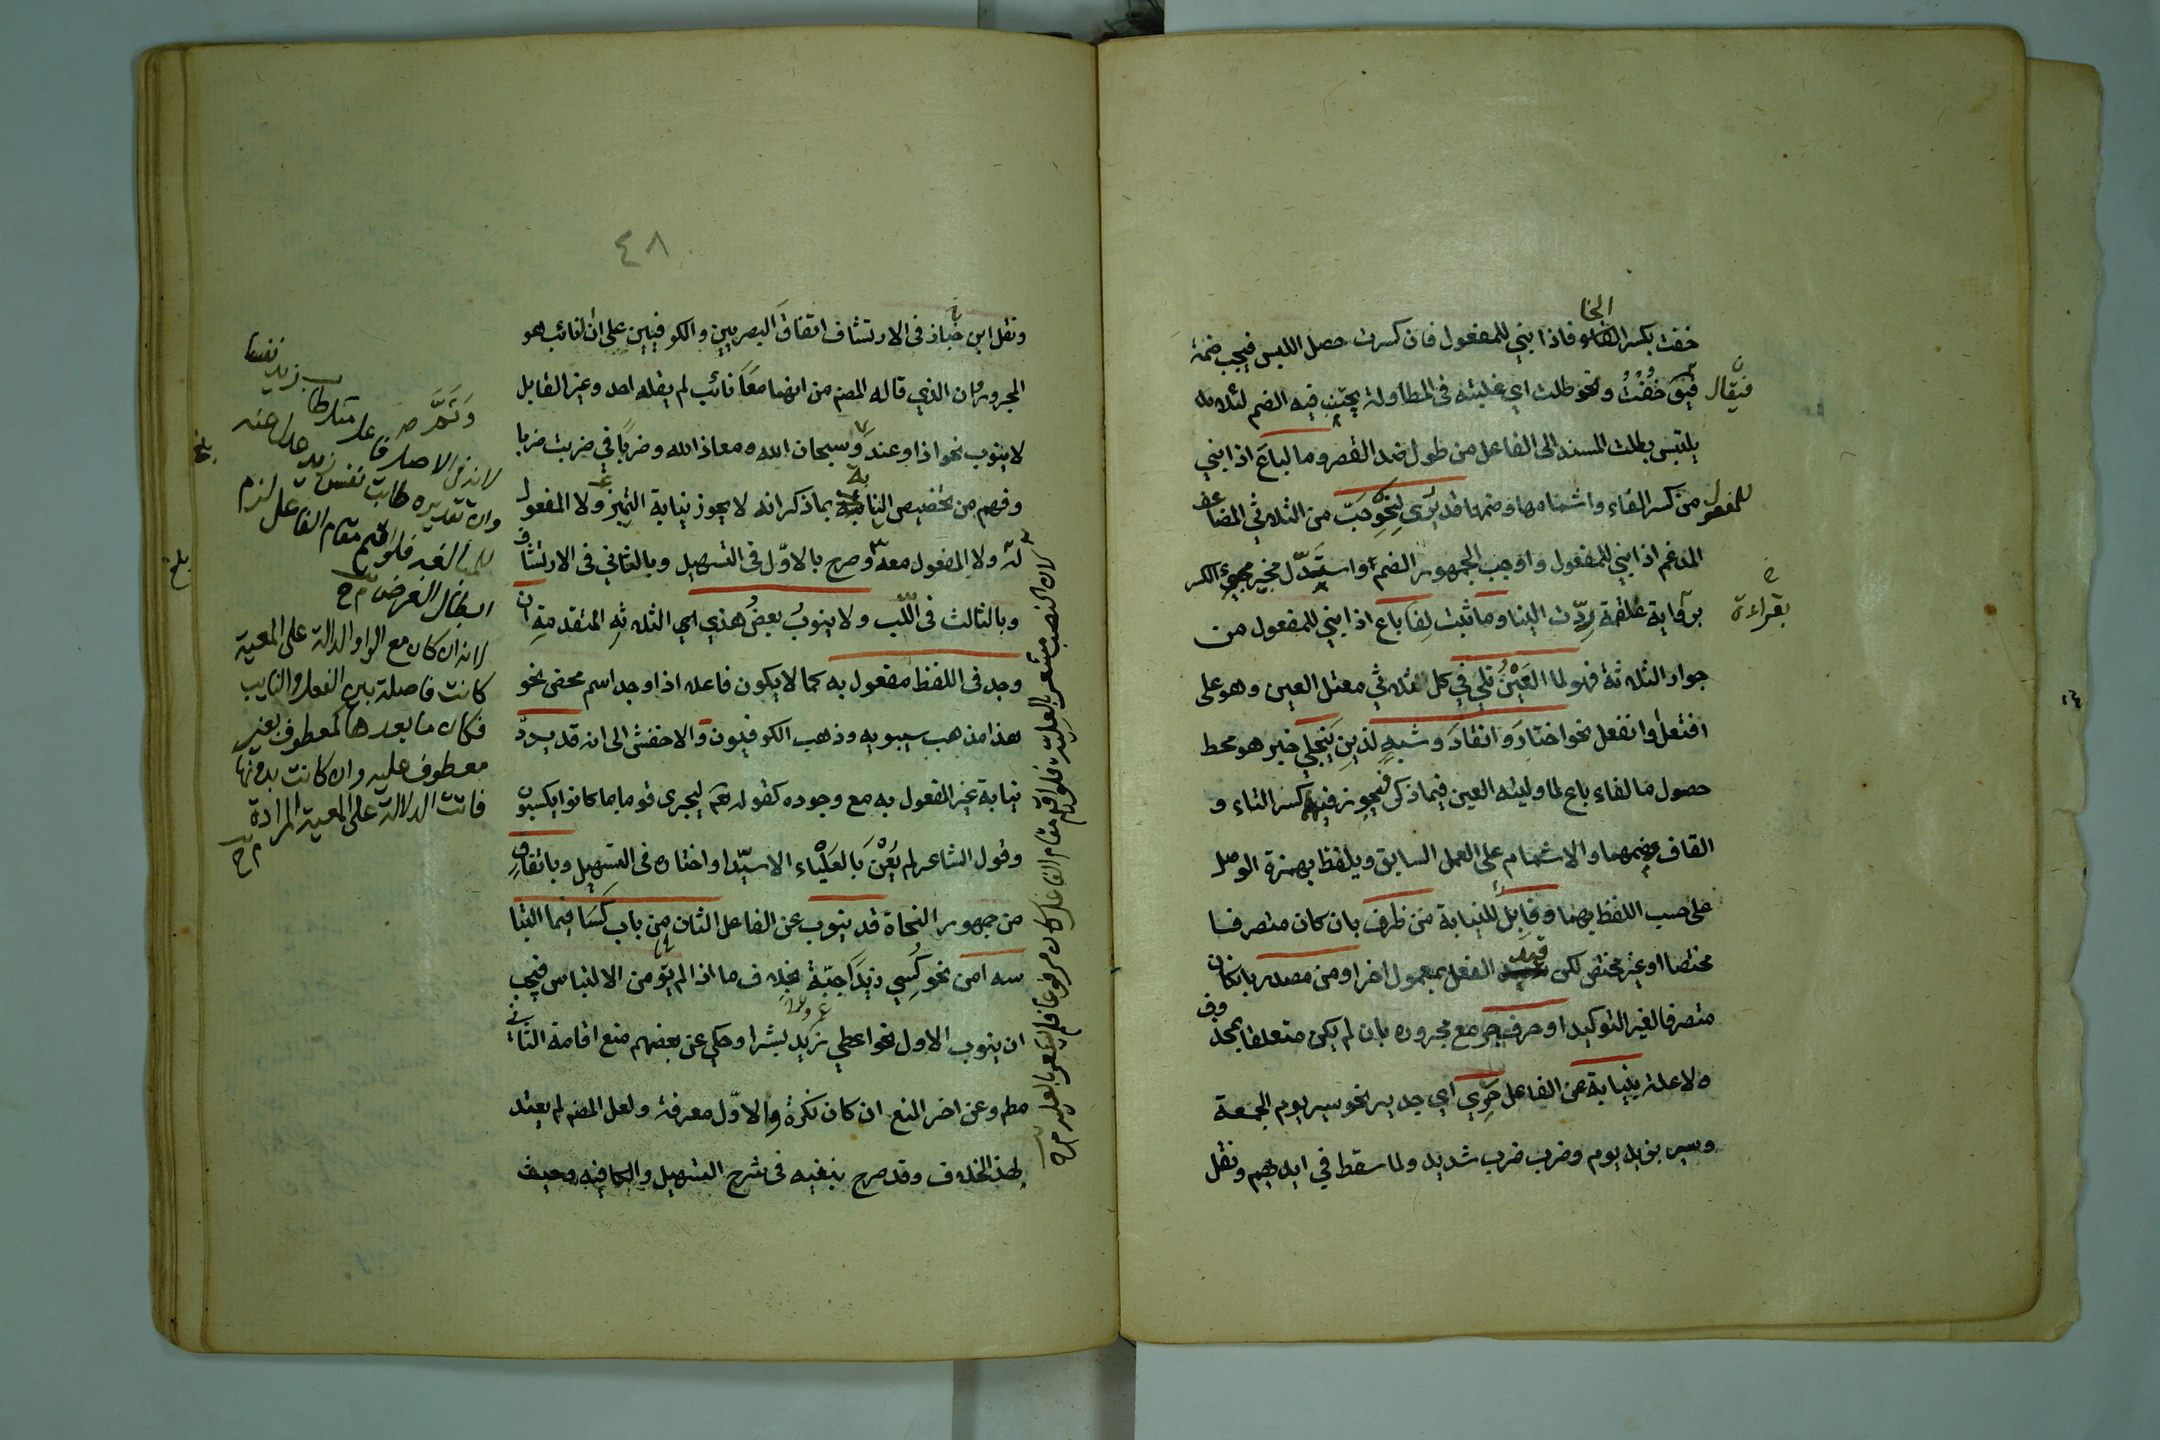 خفت بكسر الخا فاذا بني للمفعول فان كسرت حصل اللبس فيجب ضمه
فيقال خُفْتُ ونحو طلت اي غلبته في المطاولة يجتنب فيه الضم لئلا
يلتبس بطلت المسند الى الفاعل من طول ضد القصر وما لباعَ اذا بني
للمفعول من كسر الفاء واشمامها وضمها قد يُرَى لِنَحْوِ حَبّ من الثلاثي المضاعف
المدغم اذا بني للمفعول واوجب الجمهور الضم واستدل مجيز الكسر
بقراءة علقمة رِدّت الينا وما ثبت لِفَا باع اذا بني للمفعول من
جواز الثلاثة فهو لما العَيْنُ تلي في كل ثلاثي معتل العين وهو على
افتعل وانفعل نحو اختارَ وانقادَ وشبهٍ لذينِ يَنجلي خبر هو محط
حصول ما لفاء باع لما وليته العين فيما ذكر فيجوز فيه كسر التاء و
القاف وضمهما والاشمام على العمل السابق ويلفظ بهمزة الوصل
على حسب اللفظ بهما وقابِلٌ للنيابة مَن ظرف بان كان متصرفا
مختصا او غير مختص لكن قيد الفعل بمعمول اخر او من مصدر بان كان
متصرفا لغير التوكيد او حرف جر مع مجروره بان لم يكن متعلقا بمحذوف
ولا علة بنيابة عن الفاعل حَرِي اي جدير نحو سير يوم الجمعة
وسير بزيد يوم وضرب ضرب شديد ولما سقط في ايديهم ونقل
٤٨
ونقل ابن خباز في الارتشاف اتفاق البصريين والكوفيين على ان النائب هو
المجرور وان الذي قاله المصنف من انهما معًا نائب لم يقله احد وغير القابل
لا ينوب نحو اذا وعند وسبحان الله ومعاذ الله وضربًا في ضربت ضربا
وفهم من تخصيص النيابة بما ذكر انه لا يجوز نيابة التميز ولا المفعول
له ولا المفعول معه وصرح بالاوّل في التسهيل وبالثاني في الارتشاف
وبالثالث في اللّب ولا ينوبُ بعضُ هذي اي الثلاثه المتقدمةِ ان
وجد في اللفظ مفعول به كما لا يكون فاعلا اذا وجد اسم محض نحو
هذا مذهب سيبويه وذهب الكوفيون والاخفش الى انه قد يرِدُ
نيابة غير المفعول به مع وجوده كقوله تعم ليجزى قوما بما كانوا يكسبون
وقول الشاعر لم يُعْنَ بالعَلْياء الا سيّدا واختاره في التسهيل وباتفاقٍ
من جمهور النحاة قد ينوب عن الفاعل الثان من باب كَسَا فيما التبا
سه امن نحو كُسِي زيدًا جبّة بخلاف ما اذا لم يؤمن الالتباس فيجب
ان ينوب الاول نحو اعطي زيد بشرا وحكي عن بعضهم منع اقامة الثاني
مطم وعن اخر المنع ان كان نكرة والاوّل معرفة ولعل المصنف لم يعتد
لهذا الخلاف وقد صرح بنفيه في شرح التسهيل والكافيه وحيث
فيقال
بقراءة
لانه في الاصل فاعل
وان تقديره طابت نفس زيد
للمبالغة فلو اقيم مقام الفاعل لزم
ابطال الغرض
لانه ان كان مع الواو الدالة على المعية
كانت فاصلة بين الفعل والنايب
فكان ما بعدها كمعطوف بغير
معطوف عليه وان كانت بدونها
فاتت الدلالة على المعية المرادة
لان النصب مشعر بالعلية فلو اقيم مقام الفاعل كان مرفوعا فلم يشعر بالعلية
بلغ
بلغ